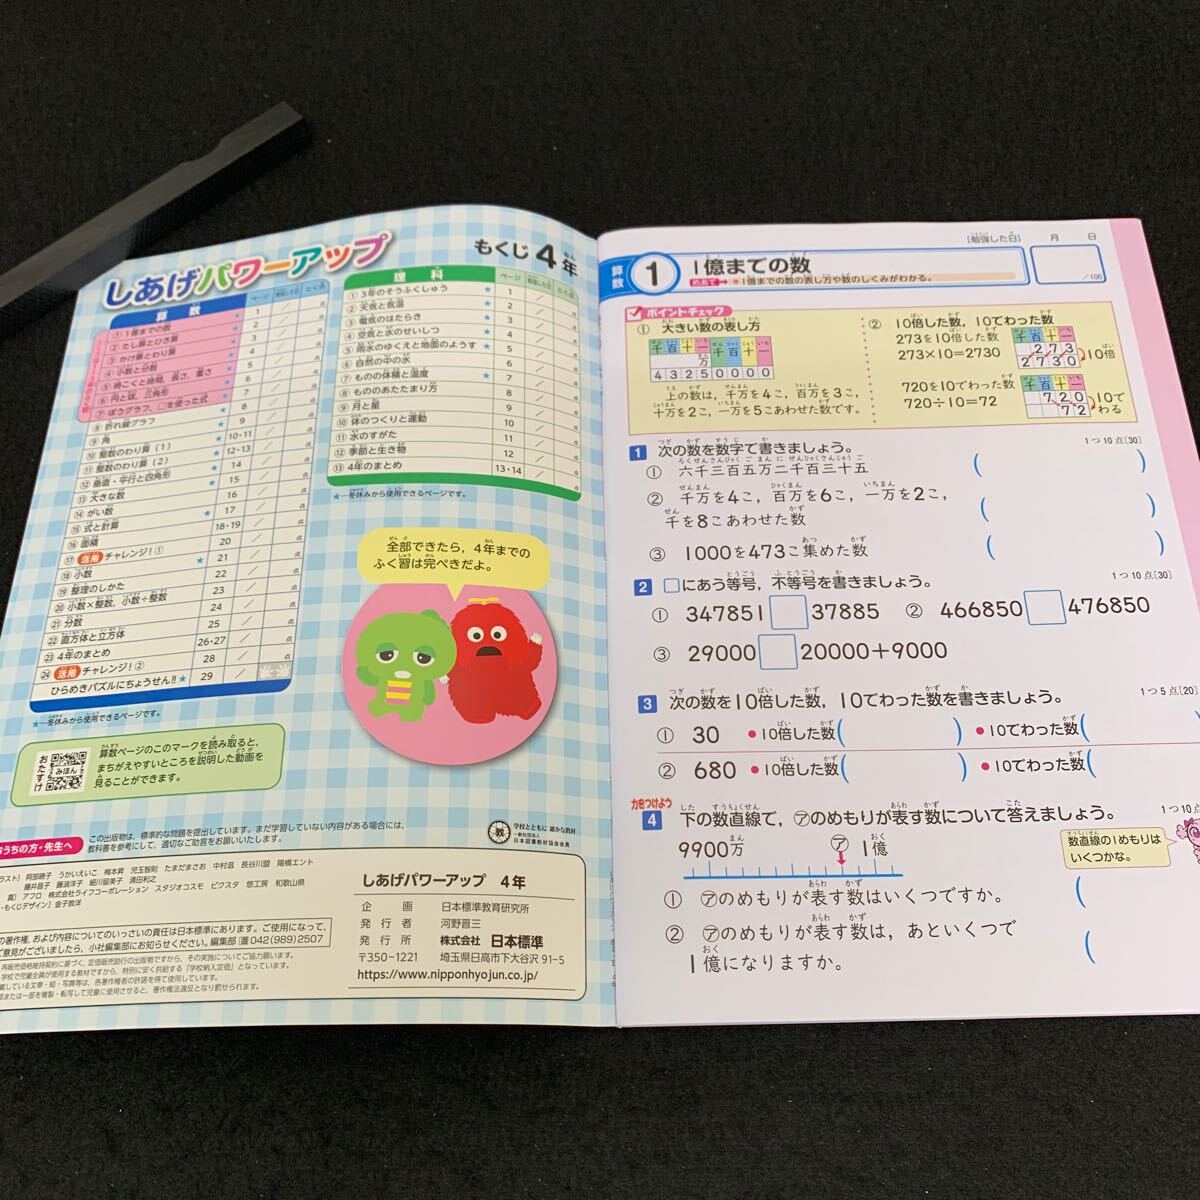 しあげパワーアップ
もくじ 4年
算数 ページ 勉強した日 とく点
① 1億までの数 ★ 1
② たし算とひき算 ★ 2
③ かけ算とわり算 ★ 3
④ 小数と分数 ★ 4
⑤ 時こくと時間，長さ，重さ ★ 5
⑥ 円と球，三角形 ★ 6
⑦ ぼうグラフ，□を使った式 ★ 7
⑧ 折れ線グラフ ★ 8
⑨ 角 ★ 9
⑩ 整数のわり算（1） ★ 10・11
⑪ 整数のわり算（2） ★ 12・13
⑫ 垂直・平行と四角形 14
⑬ 大きな数 ★ 15
⑭ がい数 16
⑮ 式と計算 ★ 17
⑯ 面積 18・19
⑰ 活用 チャレンジ！① 20
⑱ 小数 ★ 21
⑲ 整理のしかた 22
⑳ 小数×整数，小数÷整数 23
㉑ 分数 24
㉒ 直方体と立方体 25
㉓ 4年のまとめ 26・27
㉔ 活用 チャレンジ！② 28
ひらめきパズルにちょうせん!! ★ 29
★…冬休みから使用できるページです。
理科 ページ 勉強した日 とく点
① 3年のそうふくしゅう ★ 1
② 天気と気温 ★ 2
③ 電気のはたらき ★ 3
④ 空気と水のせいしつ ★ 4
⑤ 雨水のゆくえと地面のようす ★ 5
⑥ 自然の中の水 6
⑦ ものの体積と温度 ★ 7
⑧ もののあたたまり方 8
⑨ 月と星 9
⑩ 体のつくりと運動 10
⑪ 水のすがた 11
⑫ 季節と生き物 12
⑬ 4年のまとめ 13・14
★…冬休みから使用できるページです。
全部できたら，4年までの
ふく習は完ぺきだよ。
おたすけ
みほん
算数ページのこのマークを読み取ると，
まちがえやすいところを説明した動画を
見ることができます。
おうちの方・先生へ
この出版物は、標準的な問題を提出しています。まだ学習していない内容がある場合には，
教科書を参考にして，適切なご助言をお願いいたします。
学校とともに 確かな教材
一般社団法人
日本図書教材協会会員
しあげパワーアップ 4年
企画 日本標準教育研究所
発行者 河野晋三
発行所 株式会社 日本標準
〒350-1221 埼玉県日高市下大谷沢 91-5
https://www.nipponhyojun.co.jp/
算数
1
1億までの数
めあて→ ●1億までの数の表し方や数のしくみがわかる。
[勉強した日] 月 日
/100
ポイントチェック
① 大きい数の表し方
千 百 十 一 千 百 十 一
万
4 3 2 5 0 0 0 0
上の数は，千万を4こ，百万を3こ，
十万を2こ，一万を5こあわせた数です。
② 10倍した数，10でわった数
273を10倍した数
273×10=2730
千 百 十 一
2 7 3
2 7 3 0
10倍
720を10でわった数
720÷10=72
千 百 十 一
7 2 0
7 2
10で
わる
1 次の数を数字で書きましょう。 1つ10点[30]
① 六千三百五万二千百三十五 ( )
② 千万を4こ，百万を6こ，一万を2こ，
千を8こあわせた数 ( )
③ 1000を473こ集めた数 ( )
2 □にあう等号，不等号を書きましょう。 1つ10点[30]
① 347851 □ 37885 ② 466850 □ 476850
③ 29000 □ 20000+9000
3 次の数を10倍した数，10でわった数を書きましょう。 1つ5点[20]
① 30 ●10倍した数( ) ●10でわった数(
② 680 ●10倍した数( ) ●10でわった数(
力をつけよう
4 下の数直線で，㋐のめもりが表す数について答えましょう。 1つ10点
9900万 ㋐ 1億
数直線の1めもりは
いくつかな。
① ㋐のめもりが表す数はいくつですか。 (
② ㋐のめもりが表す数は，あといくつで
1億になりますか。 (